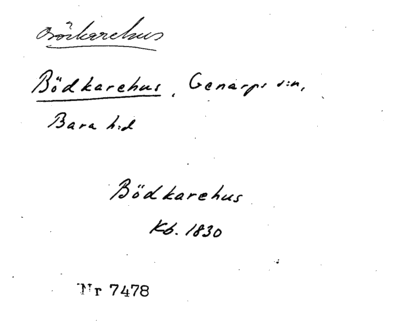 Bödkarehus
Bödkarehus, Genarps s:n,
Bara h:d
Bödkarehus
Kb. 1830
Nr 7478